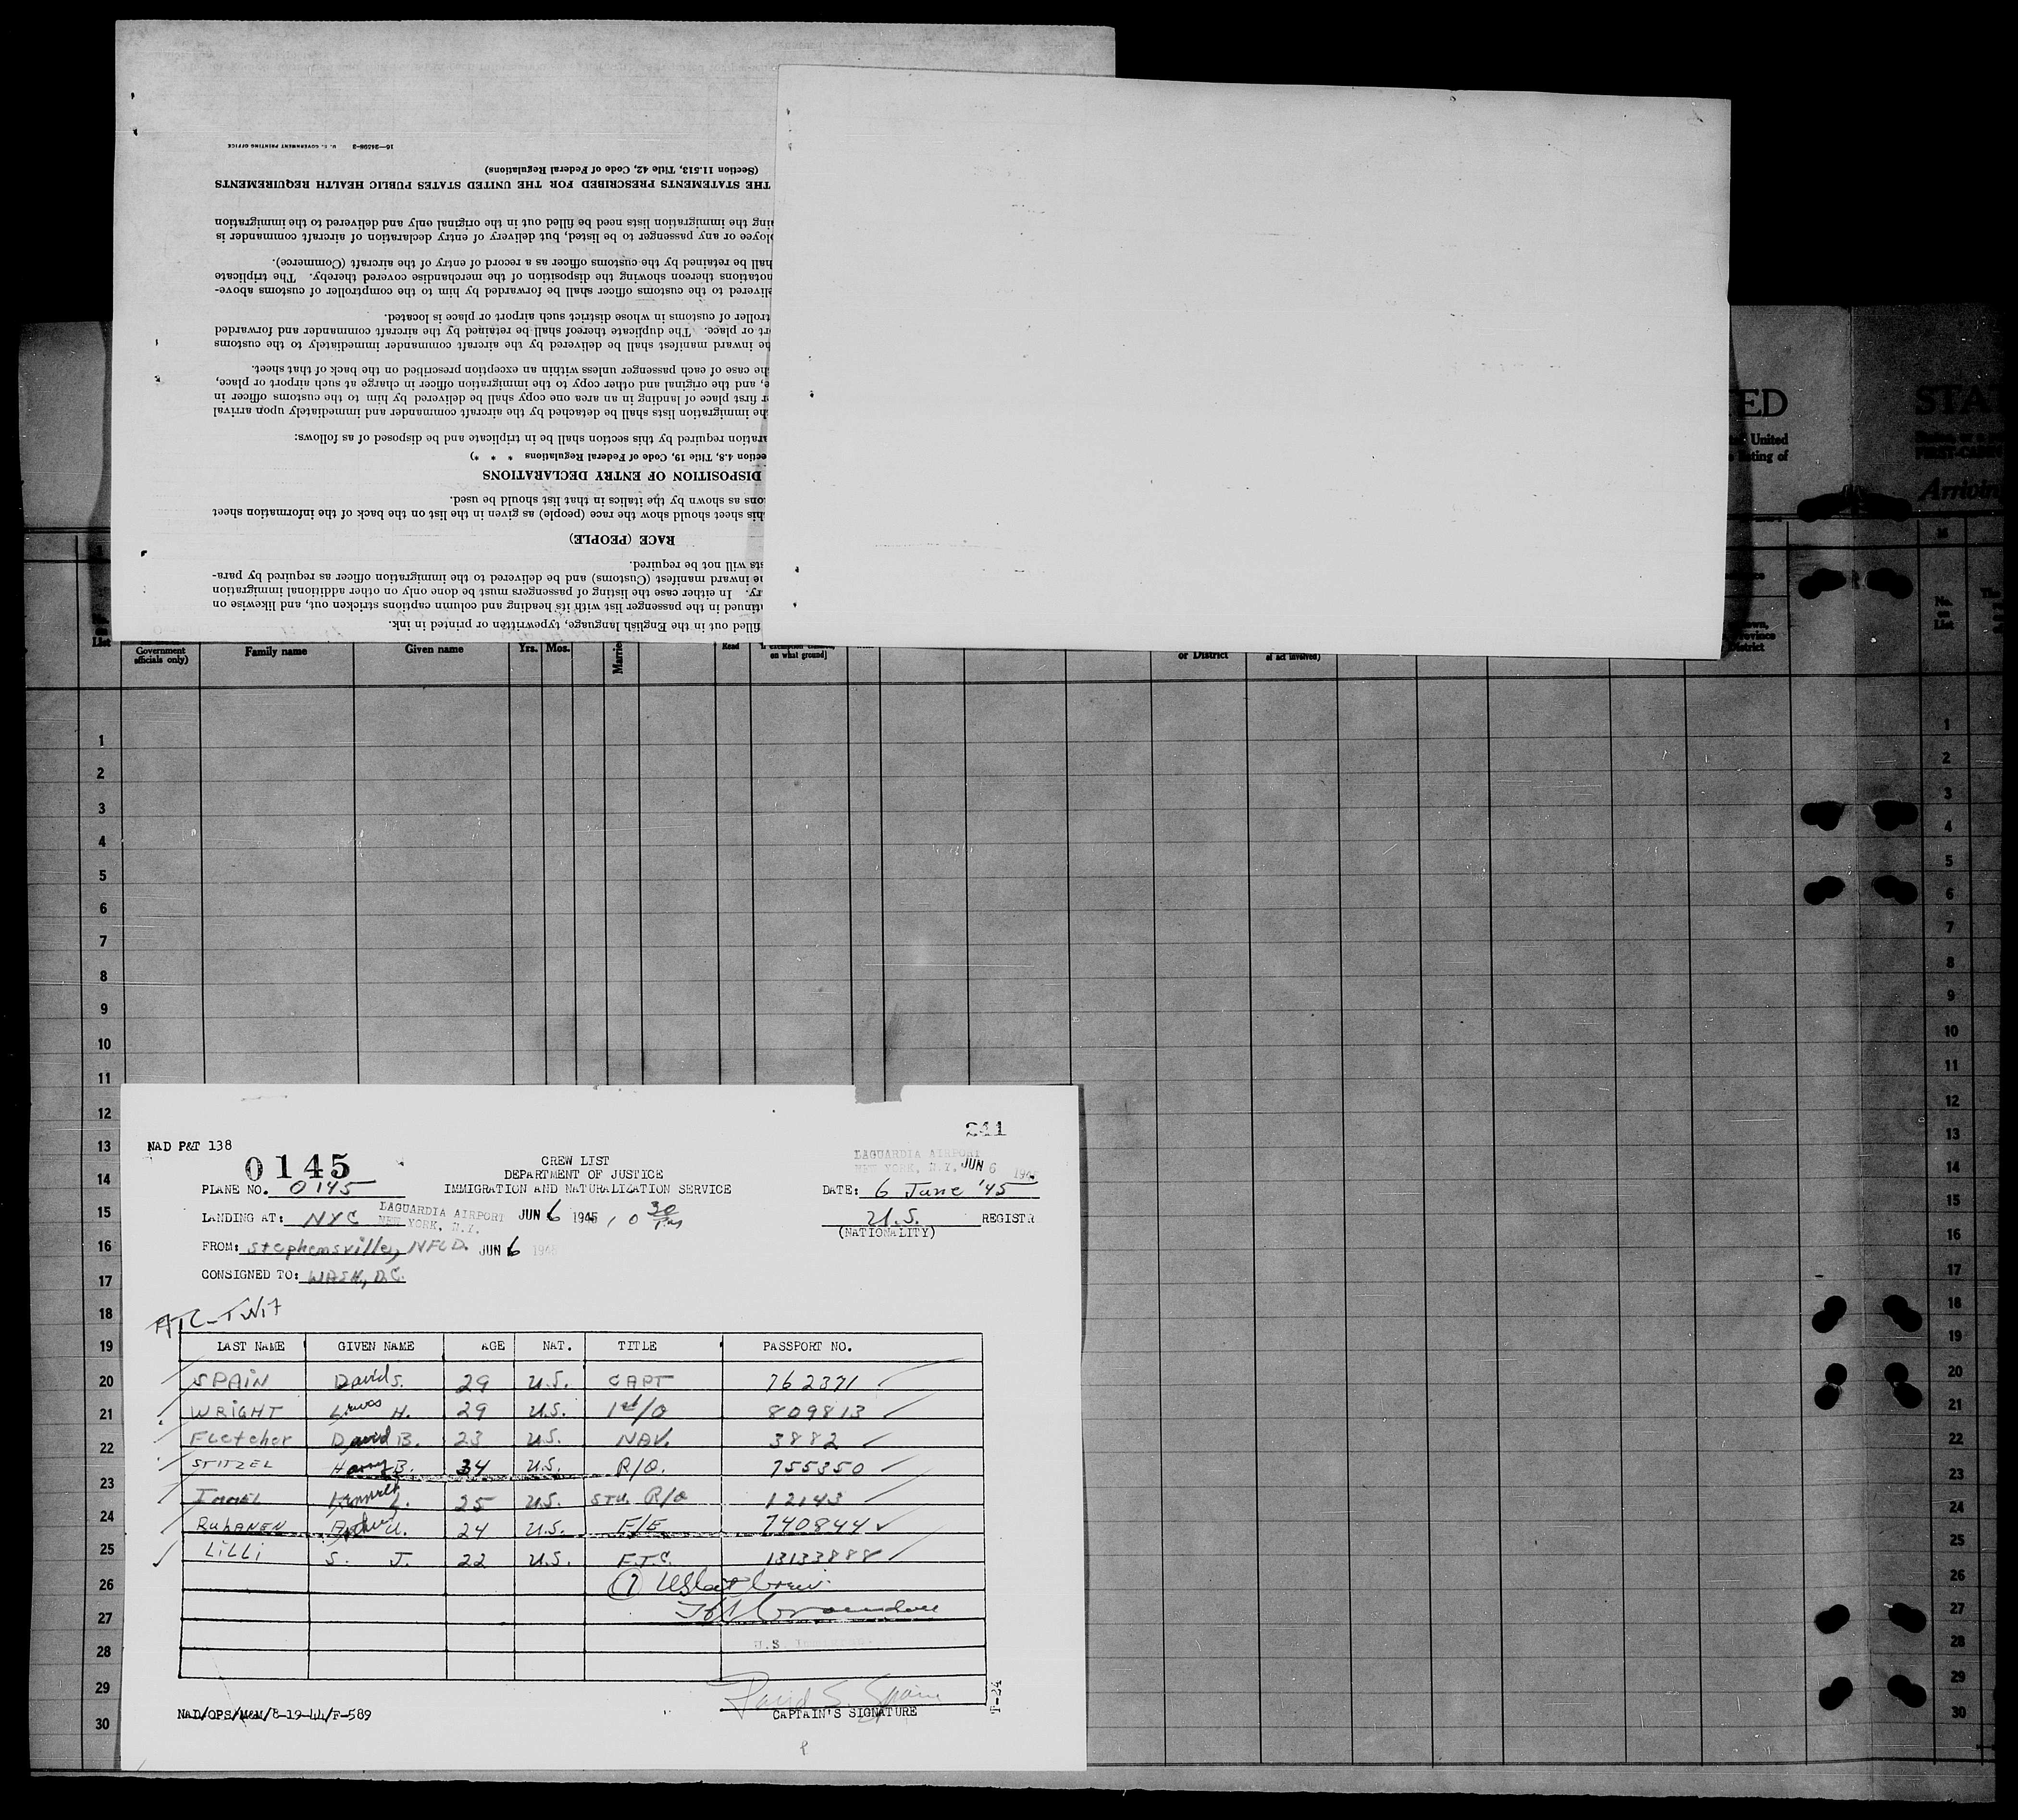 16—24598-3 U. S. GOVERNMENT PRINTING OFFICE
(Section 11.513, Title 42, Code of Federal Regulations)
THE STATEMENTS PRESCRIBED FOR THE UNITED STATES PUBLIC HEALTH REQUIREMENTS
the immigration lists need be filled out in the original only and delivered to the immigration
or any passenger to be listed, but delivery of entry declaration of aircraft commander is
shall be retained by the customs officer as a record of entry of the aircraft (Commerce).
notations thereon showing the disposition of the merchandise covered thereby. The triplicate
to the customs officer shall be forwarded by him to the comptroller of customs above-
of customs in whose district such airport or place is located.
or place. The duplicate thereof shall be retained by the aircraft commander and forwarded
inward manifest shall be delivered by the aircraft commander immediately to the customs
the case of each passenger unless within an exception prescribed on the back of that sheet.
and the original and other copy to the immigration officer in charge at such airport or place,
first place of landing in an area one copy shall be delivered by him to the customs officer in
the immigration lists shall be detached by the aircraft commander and immediately upon arrival
required by this section shall be in triplicate and be disposed of as follows:
section 4.8, Title 19, Code of Federal Regulations * * *)
DISPOSITION OF ENTRY DECLARATIONS
as shown by the italics in that list should be used.
this sheet should show the race (people) as given in the list on the back of the information sheet
RACE (PEOPLE)
will not be required.
inward manifest (Customs) and be delivered to the immigration officer as required by para-
In either case the listing of passengers must be done only on other additional immigration
in the passenger list with its heading and column captions stricken out, and likewise on
filled out in the English language, typewritten or printed in ink.
ED STA
United
listing of
Arrivin
No. on List
List Government officials only) Family name Given name Yrs. Mos. Marrie Read on what ground] or District of act involved) District
1 1
2 2
3 3
4 4
5 5
6 6
7 7
8 8
9 9
10 10
11 11
12 12
13 13
14 14
15 15
16 16
17 17
18 18
19 19
20 20
21 21
22 22
23 23
24 24
25 25
26 26
27 27
28 28
29 29
30 30
241
NAD P&T 138
0145
CREW LIST
DEPARTMENT OF JUSTICE
IMMIGRATION AND NATURALIZATION SERVICE
LAGUARDIA AIRPORT
NEW YORK, N.Y. JUN 6 1945
PLANE NO. 0145
DATE: 6 June '45
LANDING AT: NYC LAGUARDIA AIRPORT NEW YORK, N.Y. JUN 6 1945 10 30 PM
U.S. REGISTR
(NATIONALITY)
FROM: Stephensville, NFLD. JUN 6 1945
CONSIGNED TO: WASH, D.C.
LAST NAME GIVEN NAME AGE NAT. TITLE PASSPORT NO.
SPAIN David S. 29 U.S. CAPT 762371
WRIGHT H. 29 U.S. 1st/O 809813
Fletcher David B. 23 U.S. NAV. 3882
STITZEL Harry B. 34 U.S. R/O. 755350
Immel Kenneth L. 25 U.S. STU. R/O 12143
RuhANEN Arthur U. 24 U.S. F/E 740844
LiLLi S. J. 22 U.S. F.T.C. 13133888
U.S.
David S. Spain
CAPTAIN'S SIGNATURE
NAD/OPS/M&M/8-19-44/F-589
T-24